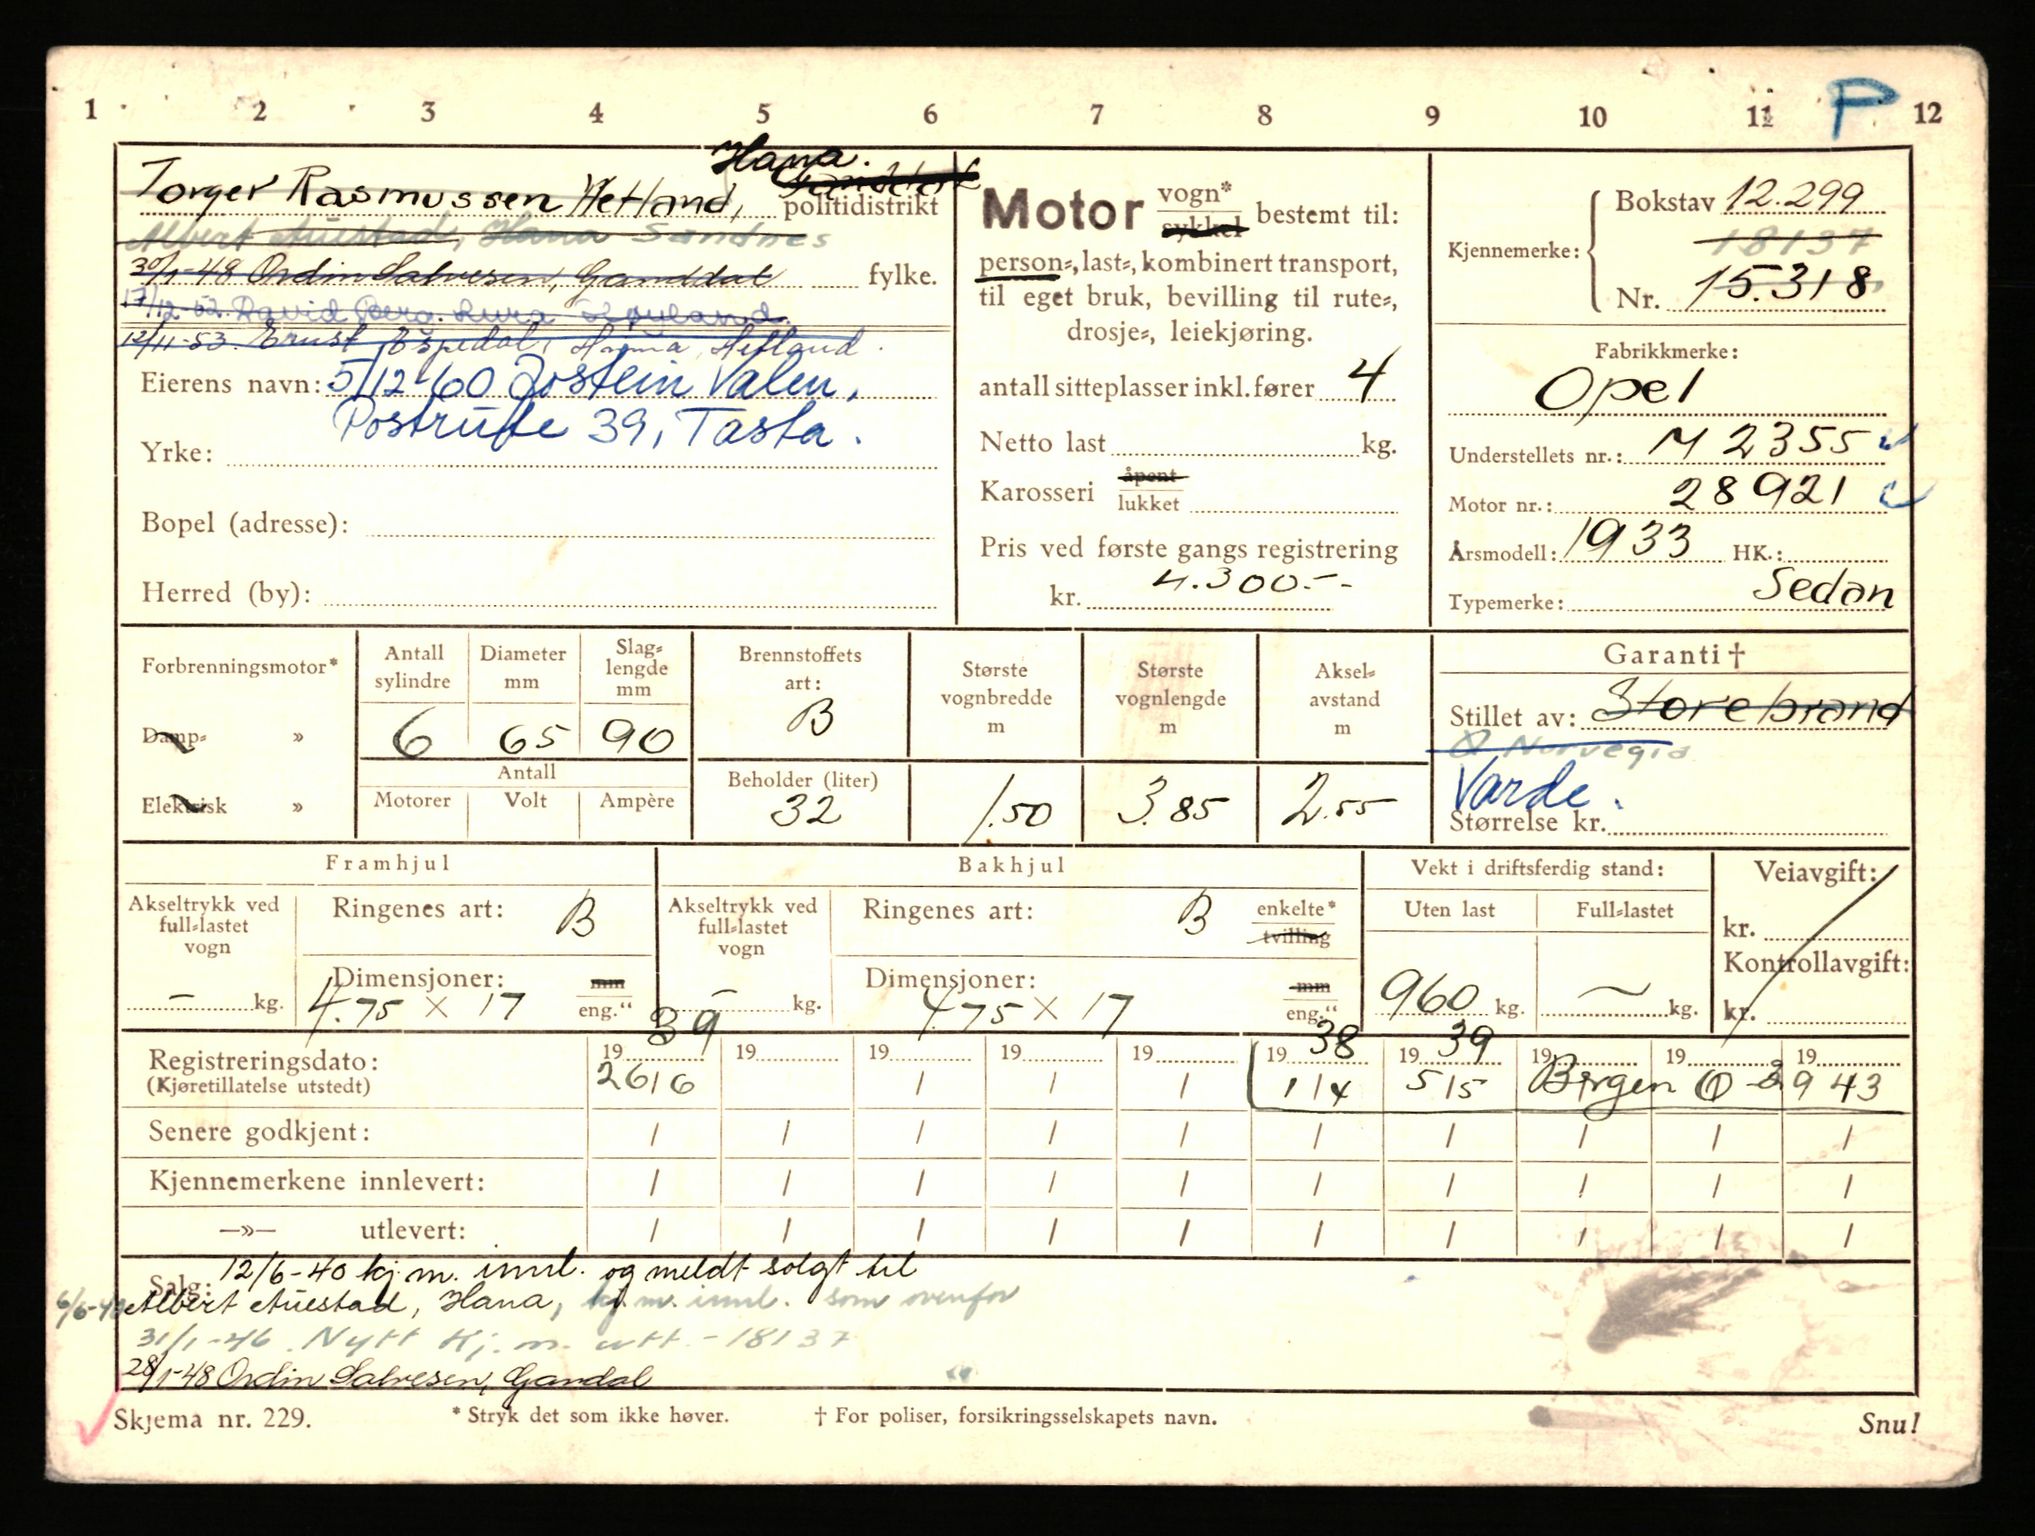 1 2 3 4 5 6 7 8 9 10 11 12
P
Hana.
Torger Rasmussen Hetland, politidistrikt
Albert Auestad, Hana Sandnes
30/1-48 Ordin Salvesen, Ganddal fylke.
17/12-52. David Berg. Lura Høyland.
12/11-53. Ernst Espedal, Hana, Hetland.
Eierens navn: 5/12-60 Jostein Valen,
Postrute 39, Tasta.
Yrke:
Bopel (adresse):
Herred (by):
Motor vogn* sykkel bestemt til:
person-, last-, kombinert transport,
til eget bruk, bevilling til rute-,
drosje-, leiekjøring.
antall sitteplasser inkl. fører 4
Netto last kg.
Karosseri åpent lukket
Pris ved første gangs registrering
kr. 4.300.--
Kjennemerke: Bokstav 12.299
18137
Nr. 15.318
Fabrikkmerke:
Opel
Understellets nr.: M 2355
Motor nr.: 28921
Årsmodell: 1933 HK.:
Typemerke: Sedan
Forbrenningsmotor*
Damp- »
Elektrisk »
Antall sylindre Diameter mm Slag-lengde mm
6 65 90
Antall
Motorer Volt Ampère
Brennstoffets art:
B
Beholder (liter)
32
Største vognbredde m
1.50
Største vognlengde m
3.85
Aksel-avstand m
2.55
Garanti †
Stillet av: Storebrand
Norvegia
Varde.
Størrelse kr.
Framhjul
Akseltrykk ved full-lastet vogn
– kg.
Ringenes art: B
Dimensjoner: mm
4.75 × 17 eng."
Bakhjul
Akseltrykk ved full-lastet vogn
– kg.
Ringenes art: B enkelte* tvilling
Dimensjoner: mm
4.75 × 17 eng."
Vekt i driftsferdig stand:
Uten last Full-lastet
960 kg. kg.
Veiavgift:
kr.
Kontrollavgift:
kr.
Registreringsdato: 19 39 19 19 19 19 19 38 19 39 19 19 19
(Kjøretillatelse utstedt) 26/6 / / / 1/4 5/5 Bergen O - 3943
Senere godkjent: / / / / / / / / / /
Kjennemerkene innlevert: / / / / / / / / / /
—»— utlevert: / / / / / / / / / /
Salg: 12/6-40 kj.m. innl. og meldt solgt til
Albert Auestad, Hana, kj.m. innl. som ovenfor
31/1-46. Nytt kj.m. utt. - 18137
28/1-48 Ordin Salvesen, Gandal
Skjema nr. 229. * Stryk det som ikke høver. † For poliser, forsikringsselskapets navn. Snu!